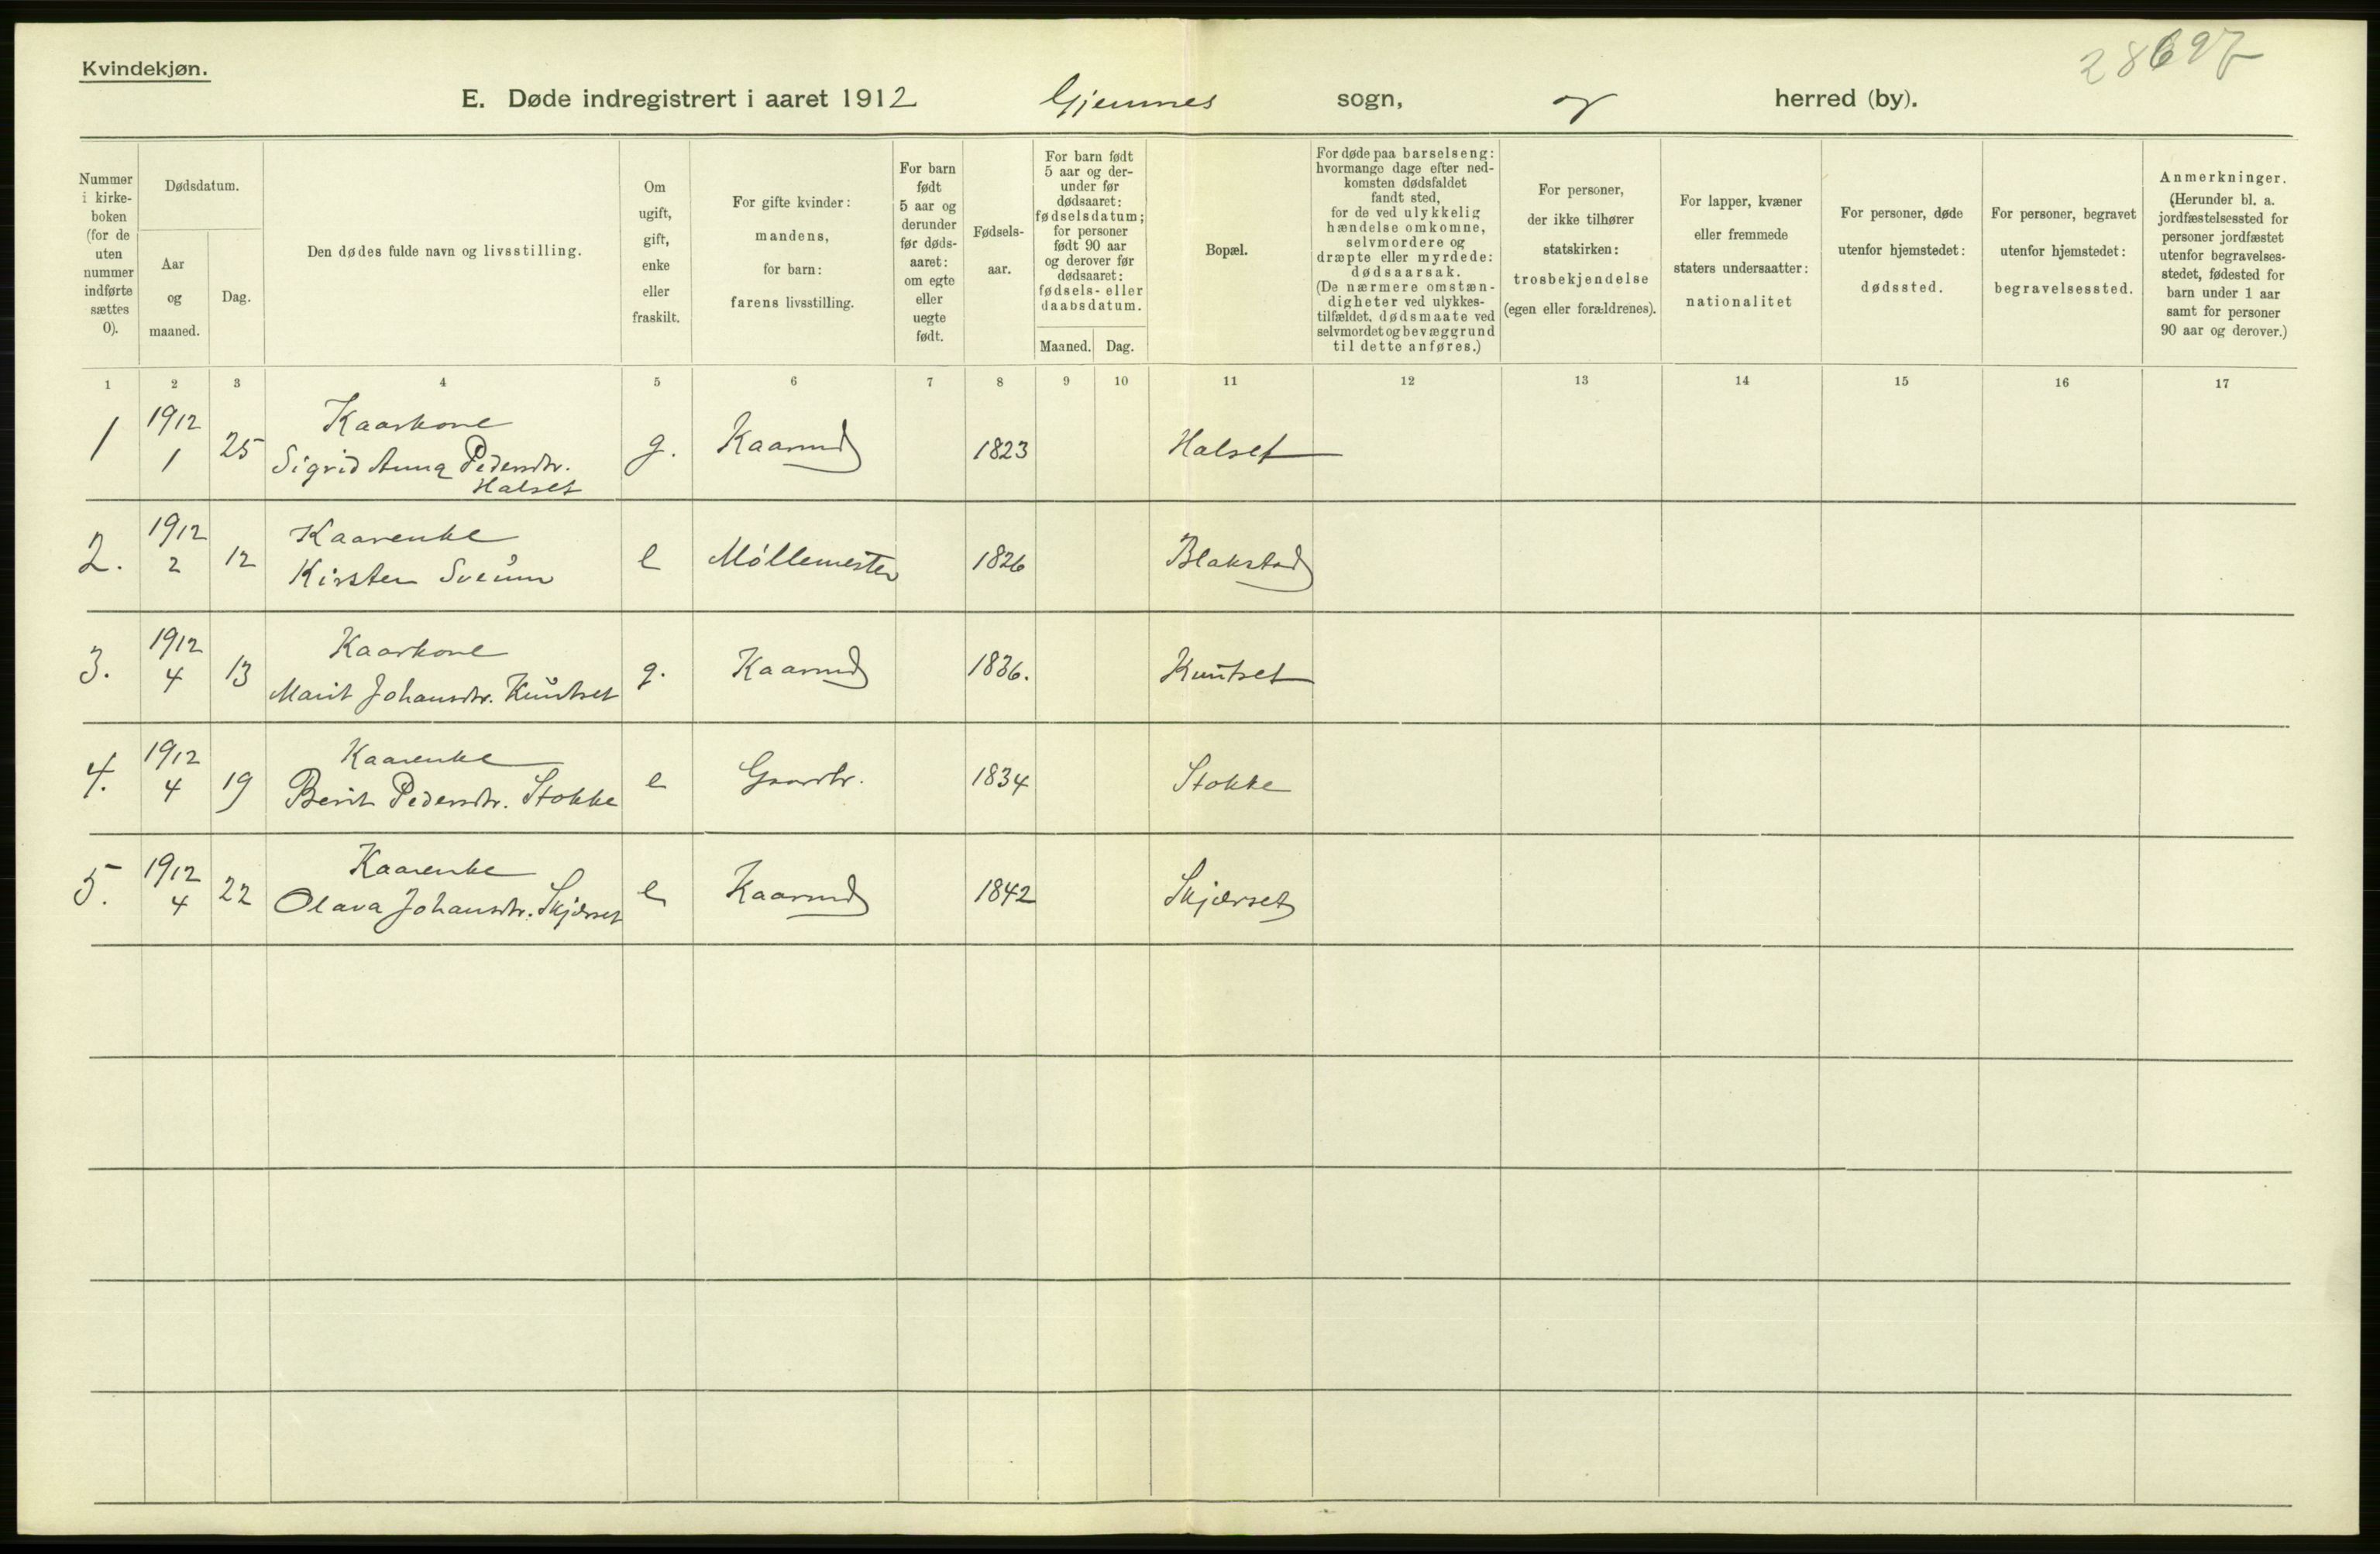 Kvindekjøn.
28697
E. Døde indregistrert i aaret 1912 Gjemnes sogn, herred (by).
Nummer i kirke-boken (for de uten nummer indførte sættes 0).
Dødsdatum.
Aar og maaned.
Dag.
Den dødes fulde navn og livsstilling.
Om ugift, gift, enke eller fraskilt.
For gifte kvinder: mandens, for barn: farens livsstilling.
For barn født 5 aar og derunder før døds-aaret: om egte eller uegte født.
Fødsels-aar.
For barn født 5 aar og der-under før dødsaaret: fødselsdatum; for personer født 90 aar og derover før dødsaaret: fødsels- eller daabsdatum.
Maaned. Dag.
Bopæl.
For døde paa barselseng: hvormange dage efter ned-komsten dødsfaldet fandt sted, for de ved ulykkelig hændelse omkomne, selvmordere og dræpte eller myrdede: dødsaarsak. (De nærmere omstæn-digheter ved ulykkes-tilfældet, dødsmaate ved selvmordet og bevæggrund til dette anføres.)
For personer, der ikke tilhører statskirken: trosbekjendelse (egen eller forældrenes).
For lapper, kvæner eller fremmede staters undersaatter: nationalitet
For personer, døde utenfor hjemstedet: dødssted.
For personer, begravet utenfor hjemstedet: begravelsessted.
Anmerkninger. (Herunder bl. a. jordfæstelsessted for personer jordfæstet utenfor begravelses-stedet, fødested for barn under 1 aar samt for personer 90 aar og derover.)
1 2 3 4 5 6 7 8 9 10 11 12 13 14 15 16 17
1 1912 1 25 Kaarkone
Sigrid Anna Pedersdtr. Halset g. Kaarmd 1823 Halset
2. 1912 2 12 Kaarenke
Kirsten Sveum e Møllemester 1826 Blakstad
3. 1912 4 13 Kaarkone
Marit Johansdtr. Kuntset g. Kaarmd 1836. Kuntset
4. 1912 4 19 Kaarenke
Berit Pedersdtr. Stokke e Gaardbr. 1834 Stokke
5. 1912 4 22 Kaarenke
Olava Johansdtr. Skjærset e Kaarmd 1842 Skjærset